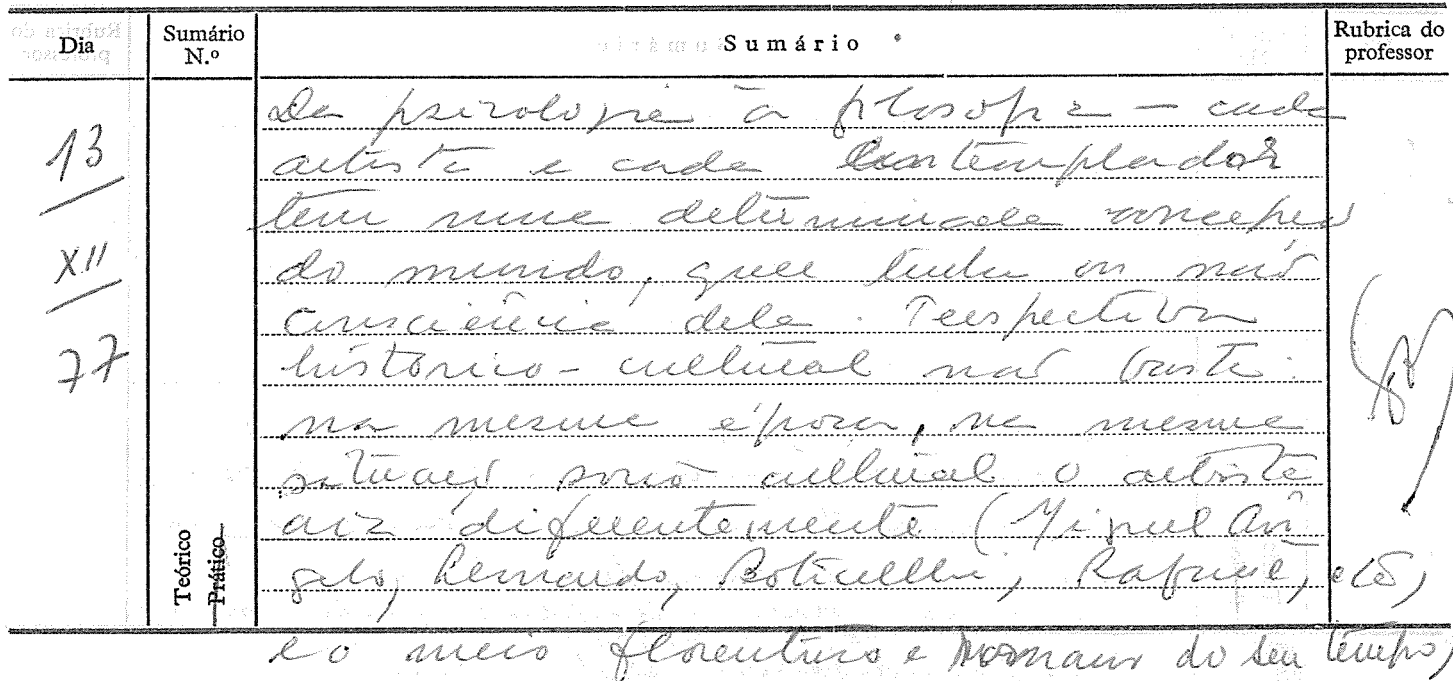 Dia
Sumário N.º
Sumário
Rubrica do professor
13
XII
77
Teórico
Prático
Da psicologia à filosofia — cada
artista e cada contemplador
tem uma determinada concepção
do mundo, quer tenha ou não
consciência dela. Perspectiva
histórico-cultural não basta:
na mesma época, na mesma
situação socio cultural o artista
cria diferentemente (Miguel Ân
gelo, Leonardo, Boticelli, Rafael, etc,
e o meio florentino e romano do seu tempo)